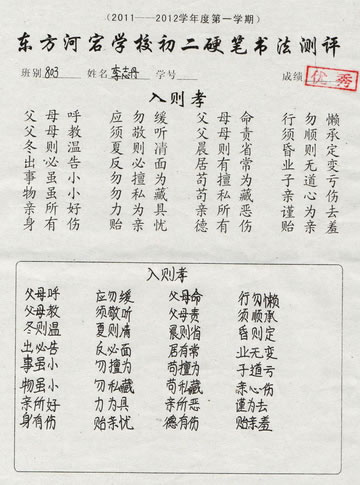 （2011——2012学年度第一学期）
东方河宕学校初二硬笔书法测评
班别 803 姓名 李志丹 学号 成绩 优秀
入则孝
父母呼 应勿缓 父母命 行勿懒
父母教 须敬听 父母责 须顺承
冬则温 夏则凊 晨则省 昏则定
出必告 反必面 居有常 业无变
事虽小 勿擅为 苟擅为 子道亏
物虽小 勿私藏 苟私藏 亲心伤
亲所好 力为具 亲所恶 谨为去
身有伤 贻亲忧 德有伤 贻亲羞
入则孝
父母呼 应勿缓 父母命 行勿懒
父母教 须敬听 父母责 须顺承
冬则温 夏则清 晨则省 昏则定
出必告 反必面 居有常 业无变
事虽小 勿擅为 苟擅为 子道亏
物虽小 勿私藏 苟私藏 亲心伤
亲所好 力为具 亲所恶 谨为去
身有伤 贻亲忧 德有伤 贻亲羞